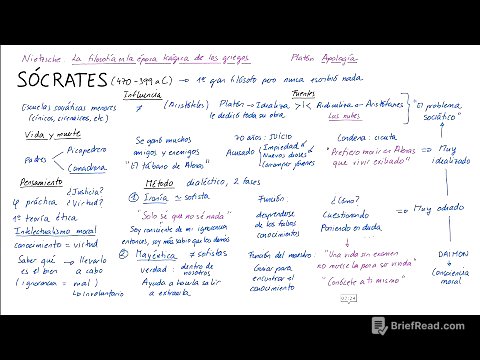 Nietzsche. La filosofía en la época trágica de los griegos Platón Apología
SÓCRATES (470-399 a C) → 1er gran filósofo pero nunca escribió nada
Influencia Fuentes
Escuelas socráticas menores ≠ (Aristóteles) Platón → Idealiza >|< Ridiculiza ← Aristófanes "El problema
(cínicos, cirenaicos, etc) le dedicó toda su obra Las nubes socrático"
Vida y muerte
Padres Picapedrero
Comadrona
Se ganó muchos
amigos y enemigos
"El tábano de Atenas"
70 años: JUICIO
Acusado Impiedad
Nuevos dioses
Corromper jóvenes
Condena: cicuta
"Prefiero morir en Atenas
que vivir exiliado"
⇒ Muy
idealizado
Pensamiento
φ práctica ¿Justicia?
¿Virtud?
1ª teoría ética
Intelectualismo moral
conocimiento = virtud
Saber qué → llevarlo
es el bien a cabo
(ignorancia = mal)
Lo involuntario
Método dialéctico, 2 fases
① Ironía ≃ sofista
"Solo sé que no sé nada"
Soy consciente de mi ignorancia
entonces, soy más sabio que los demás
② Mayéutica ≠ sofistas
verdad: dentro de
nosotros
Ayuda a hacerla salir
a extraerla
Función:
desprenderse
de los falsos
conocimientos
Función del maestro:
Guiar para
encontrar el
conocimiento
¿Cómo?
Cuestionando
Poniendo en duda
⇒ Muy odiado
"Una vida sin examen
no merece la pena ser vivida"
"Conócete a ti mismo"
DAIMON
Consciencia
moral
BriefRead.com